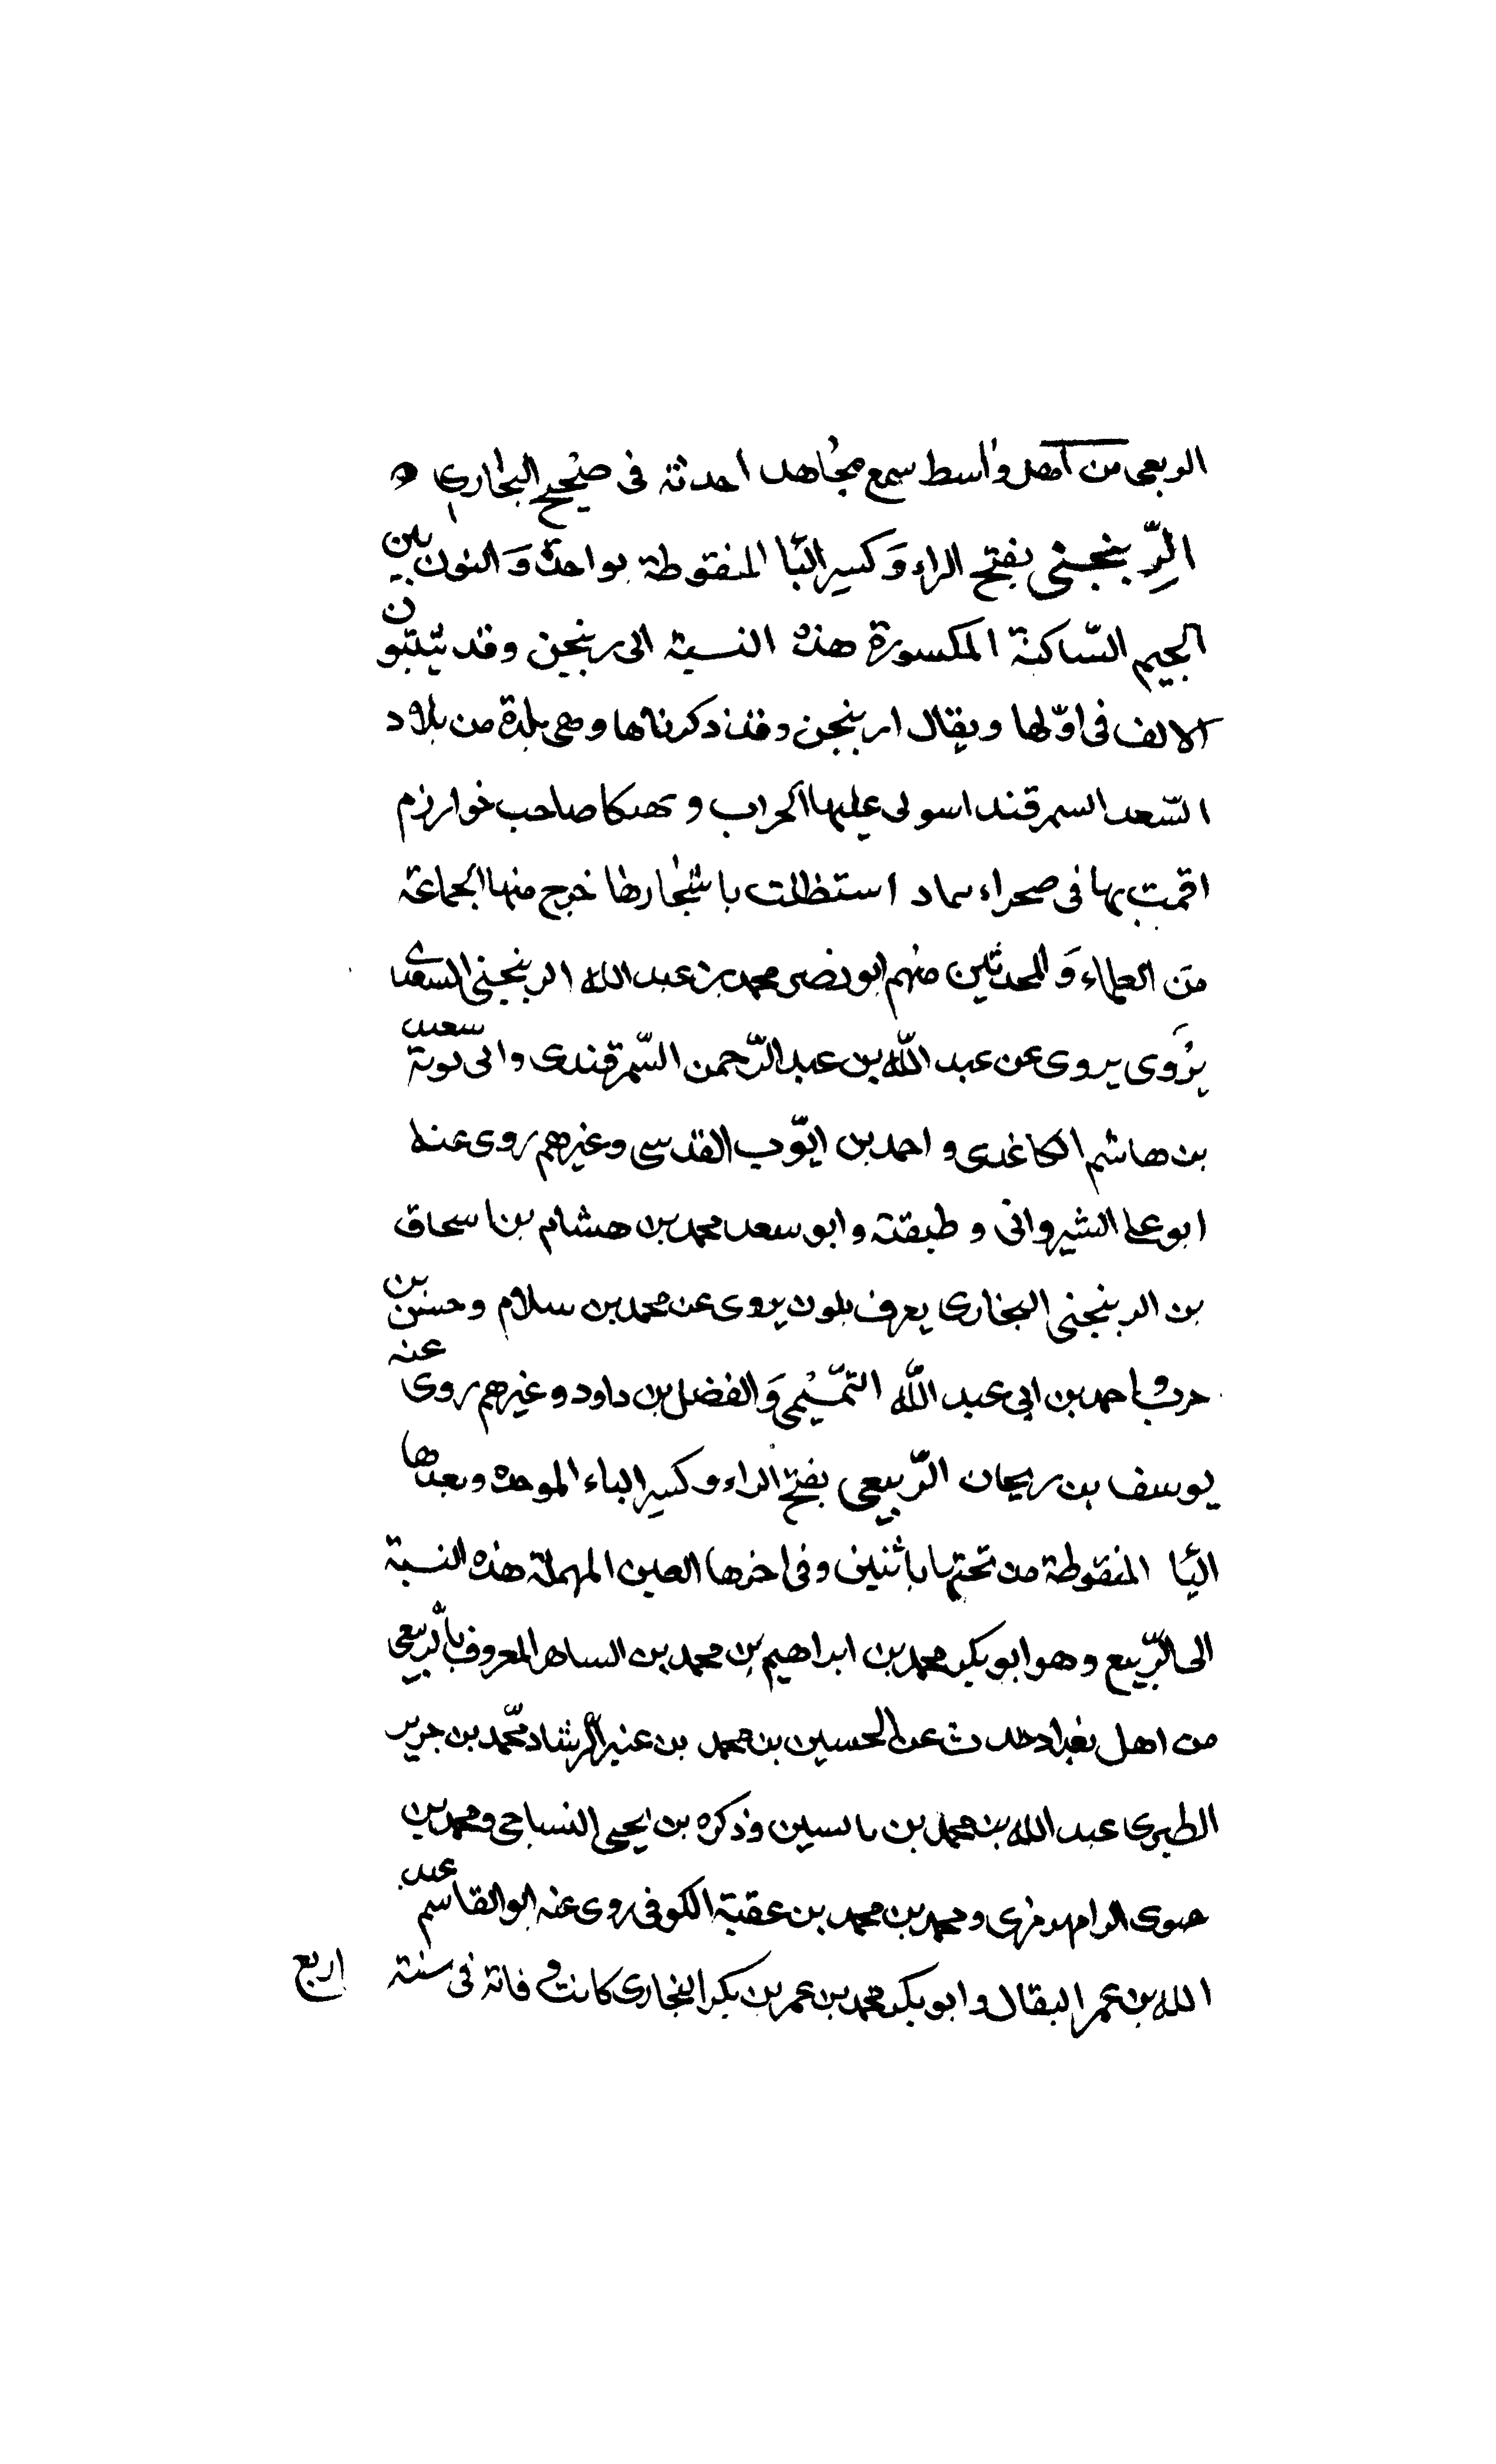 الربعى من اهل واسط سمع مجاهد احدثه فى صحيح البخارى ه
الرِّبنجنى بفتح الراء وَكسر البا المنقوطة بواحدة وَالنون بين
الجيم السّاكنة المكسورة هذه النسبة الى ربنجن وقد يثبتون
الالف فى اوّلها ويقال اربنجن وقد ذكرناها وهى بلدة من بلاد
السّعد السمرقند اسولى عليها الحراب و صاحب خوارزم
اقمت بها فى صحراء استظللت باشجارها خرج منها الجماعة
من العلماء وَالمحدثين منهم ابو نصر محمد بن عبد الله الربنجنى السعدى
يرْوى يروى عن عبد اللّه بن عبد الرّحمن السّمرقندى وابى توبة سعيد
بن هاشم الكاغدى و احمد بن ايوّب القدسى وغيرهم روى عنه
ابو على الشيروانى و طبقته و ابو سعد محمد بن هشام بن اسحاق
بن الربنجنى البخارى يعرف بلون يروى عن محمد بن سلام وحسن بن
حرب واحمد بن ابى عبد اللّه التمّيمى وَالفضل بن داود وغيرهم روى عنه
يوسف بن ريحان الرّبيعى بفتح الراء وكسر الباء الموحدة وبعدها
اليا المنقوطة من تحتها باثنين وفى اخرها العين المهملة هذه النسبة
الى الرّبيع وهو ابو بكر محمد بن ابراهيم بن محمد بن الساهر المعروف بالرّبيعى
من اهل بغداد حدث عن الحسين بن محمد بن عنبر الرشاد محّمد بن جرير
الطبرى عبد الله بن محمد بن ياسين وذكره بن يحيى النساجى ومحمد بن
حبوى الرامهرمزى ومحمد بن محمد بن عقبة الكوفى روى عنه ابو القاسم عبد
الله بن عمر البقال و ابو بكر محمد بن عمر بن بكر النجارى كانت وفاته فى سنة اربع